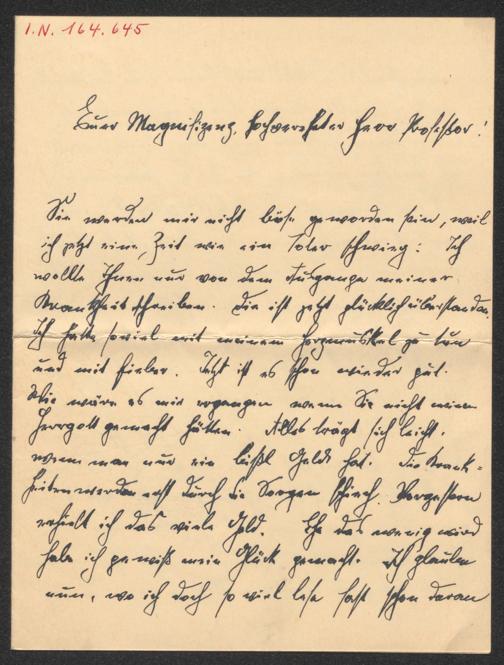 I.N. 164.645
Euer Magnifizenz, hochverehrter Herr Professor!
Sie werden mir nicht böse geworden sein, weil
ich jetzt eine Zeit wie ein Toter schwieg: Ich
wollte Ihnen nur von dem Ausgange meiner
Krankheit schreiben. Die ist jetzt glücklich überstanden.
Ich hatte soviel mit meinem Herzmuskel zu tun
und mit Fieber. Jetzt ist es schon wieder gut.
Wie wäre es mir ergangen wenn Sie nicht meinen
Herrgott gemacht hätten. Alles trägt sich leicht,
wenn man nur ein bißl Geld hat. Die Krank-
heiten werden erst durch die Sorgen schiech. Vorgestern
erhielt ich das viele Geld. Ehe das wenig wird
habe ich gewiß mein Glück gemacht. Ich glaube
nun, wo ich doch so viel lese fast schon daran